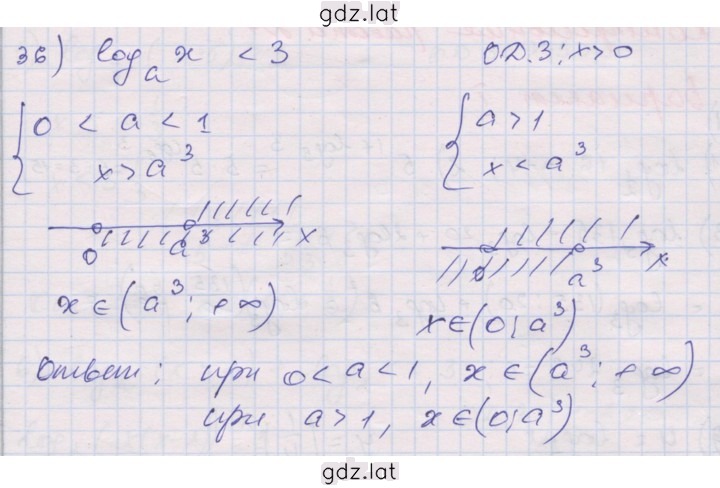 gdz.lat
36) logₐ x < 3 ОДЗ: x>0
{ 0 < a < 1
x > a³
{ a > 1
x < a³
0 a³ x
0 a³ x
x ∈ (a³; +∞)
x ∈ (0; a³)
Ответ: при 0<a<1, x ∈ (a³; +∞)
при a>1, x ∈ (0; a³)
gdz.lat